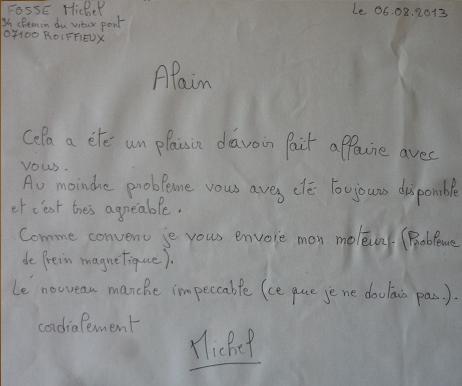 FOSSE Michel
34 chemin du vieux pont
07100 ROIFFIEUX
Le 06.08.2013
Alain
Cela a été un plaisir d'avoir fait affaire avec
vous.
Au moindre probleme vous avez été toujours disponible
et c'est très agréable.
Comme convenu je vous envoie mon moteur. (Probleme
de frein magnetique).
Le nouveau marche impeccable (ce que je ne doutais pas.).
cordialement
Michel